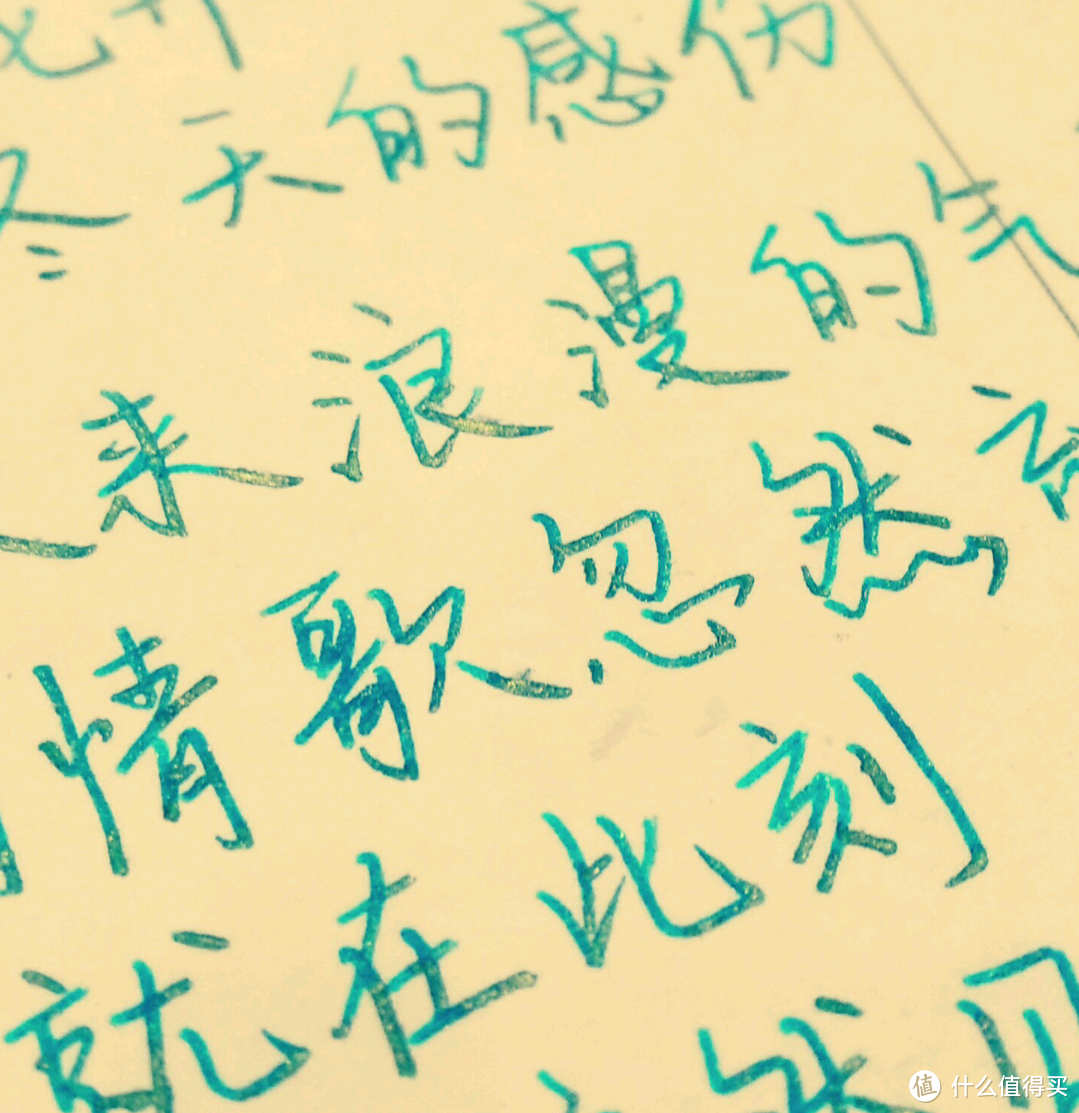 冬天的感伤
来浪漫的气
情歌忽然
就在此刻
然
值 什么值得买